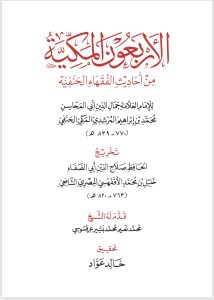 الأربعون المكية
من أحاديث الفقهاء الحنفية
للإمام العلامة جمال الدين أبي المحاسن
محمد بن إبراهيم المرشدي المكي الحنفي
(٧٧٠ - ٨٣٩ هـ)
تخريج
الحافظ صلاح الدين أبي الصفاء
خليل بن محمد الأقفهسي المصري الشافعي
(٧٦٣ - ٨٢٠ هـ)
قدم له الشيخ
محمد نعيم محمد بشير عرقسوسي
تحقيق
خالد عواد